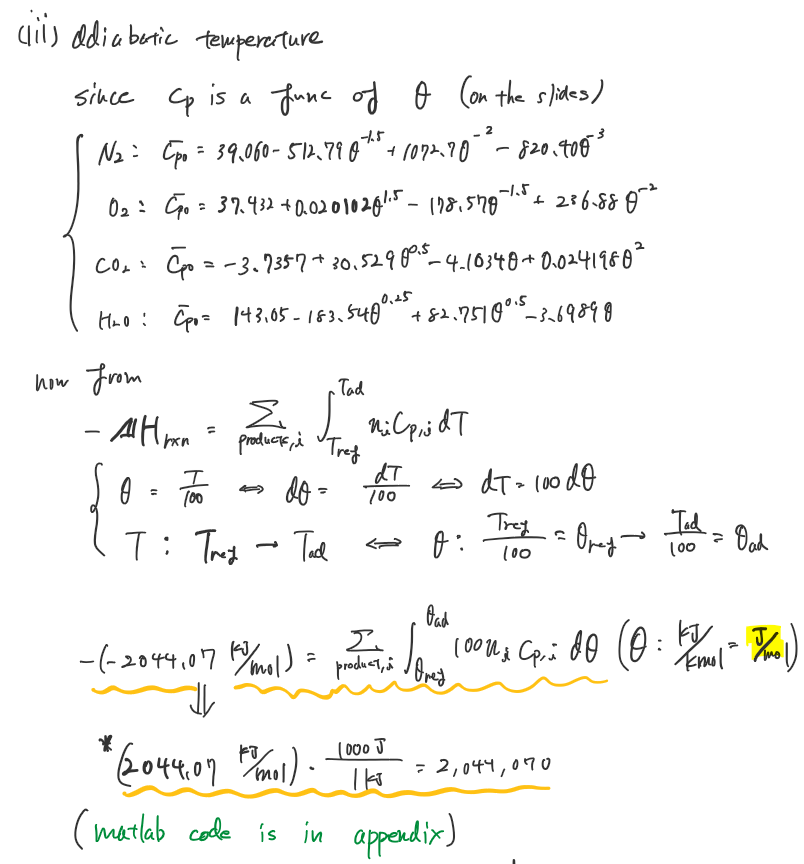 (iii) Adiabatic temperature
since Cp is a func of θ (on the slides)
N₂ : C̄p₀ = 39.060 - 512.79 θ^-1.5 + 1072.7θ^-2 - 820.40θ^-3
O₂ : C̄p₀ = 37.432 + 0.020102θ^1.5 - 178.57θ^-1.5 + 236.88 θ^-2
CO₂ : C̄p₀ = -3.7357 + 30.529 θ^0.5 - 4.1034θ + 0.024198θ^2
H₂O : C̄p₀ = 143.05 - 183.54θ^0.25 + 82.751θ^0.5 - 3.6989θ
now from
- ΔH_rxn = Σ_products,i ∫_Tref^Tad n_i C_p,i dT
θ = T/100 ⇔ dθ = dT/100 ⇔ dT = 100 dθ
T : Tref → Tad ⇔ θ : Tref/100 = θref → Tad/100 = θad
-(-2044.07 kJ/mol) = Σ_product,i ∫_θref^θad 100 n_i C_p,i dθ (θ : kJ/kmol = J/mol)
⇓
*(2044.07 kJ/mol) · 1000 J/1 kJ = 2,044,070
(matlab code is in appendix)